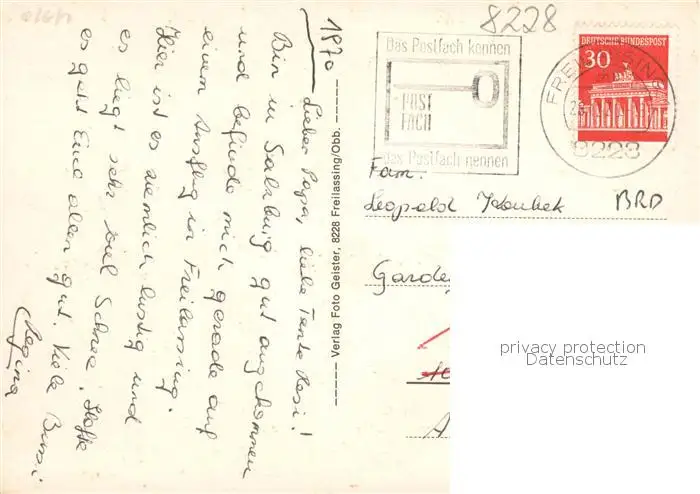 1970
Lieber Papa, liebe Tante Resi!
Bin in Salzburg gut angekommen
und befinde mich gerade auf
einem Ausflug in Freilassing.
Hier ist es ziemlich lustig und
es liegt sehr viel Schnee. Hoffe
es geht Euch allen gut. Viele Bussi
Regina
Verlag Foto Geister, 8228 Freilassing/Obb.
8228
Das Postfach kennen
POST
FACH
das Postfach nennen
DEUTSCHE BUNDESPOST
30
8228
Fam.
Leopold
BRD
privacy protection
Datenschutz